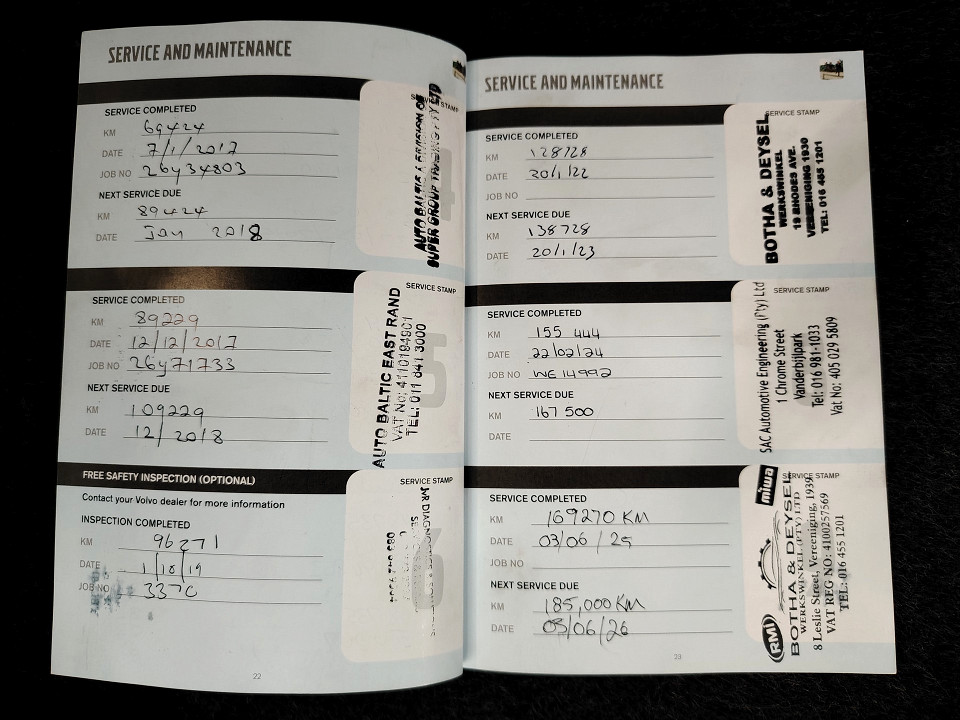 SERVICE AND MAINTENANCE
SERVICE STAMP
SERVICE COMPLETED
KM 69424
DATE 7/1/2017
JOB NO 26y34803
NEXT SERVICE DUE
KM 89424
DATE Jan 2018
AUTO BALTIC A DIVISION OF
SUPER GROUP TRADING PTY LTD
SERVICE STAMP
SERVICE COMPLETED
KM 89229
DATE 12/12/2017
JOB NO 26y71733
NEXT SERVICE DUE
KM 109229
DATE 12/2018
AUTO BALTIC EAST RAND
VAT No: 4110194901
TEL: 011 841 3000
FREE SAFETY INSPECTION (OPTIONAL)
SERVICE STAMP
Contact your Volvo dealer for more information
INSPECTION COMPLETED
KM 96271
DATE 1/10/19
JOB NO 3370
22
SERVICE AND MAINTENANCE
SERVICE STAMP
SERVICE COMPLETED
KM 128728
DATE 20/1/22
JOB NO
NEXT SERVICE DUE
KM 138728
DATE 20/1/23
BOTHA & DEYSEL
WERKSWINKEL
19 RHODES AVE.
VEREENIGING 1930
TEL: 016 455 1201
SERVICE STAMP
SERVICE COMPLETED
KM 155 444
DATE 22/02/24
JOB NO WE 14992
NEXT SERVICE DUE
KM 167 500
DATE
SAC Automotive Engineering (Pty) Ltd
1 Chrome Street
Vanderbijlpark
Tel: 016 981-1033
Vat No: 405 029 5809
SERVICE STAMP
SERVICE COMPLETED
KM 169270 KM
DATE 03/06/25
JOB NO
NEXT SERVICE DUE
KM 185,000 KM
DATE 03/06/26
miwa
RMI
BOTHA & DEYSEL
WERKSWINKEL (PTY) LTD
8 Leslie Street, Vereeniging, 1939
VAT REG NO: 4100257569
TEL: 016 455 1201
23